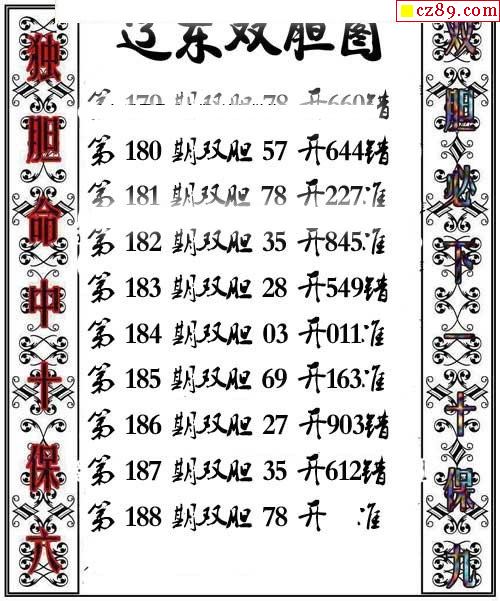 cz89.com
辽东双胆图
独胆命中十保六
双胆必下一十保九
第 179 期双胆 78 开660错
第 180 期双胆 57 开644错
第 181 期双胆 78 开227准
第 182 期双胆 35 开845准
第 183 期双胆 28 开549错
第 184 期双胆 03 开011准
第 185 期双胆 69 开163准
第 186 期双胆 27 开903错
第 187 期双胆 35 开612错
第 188 期双胆 78 开 准